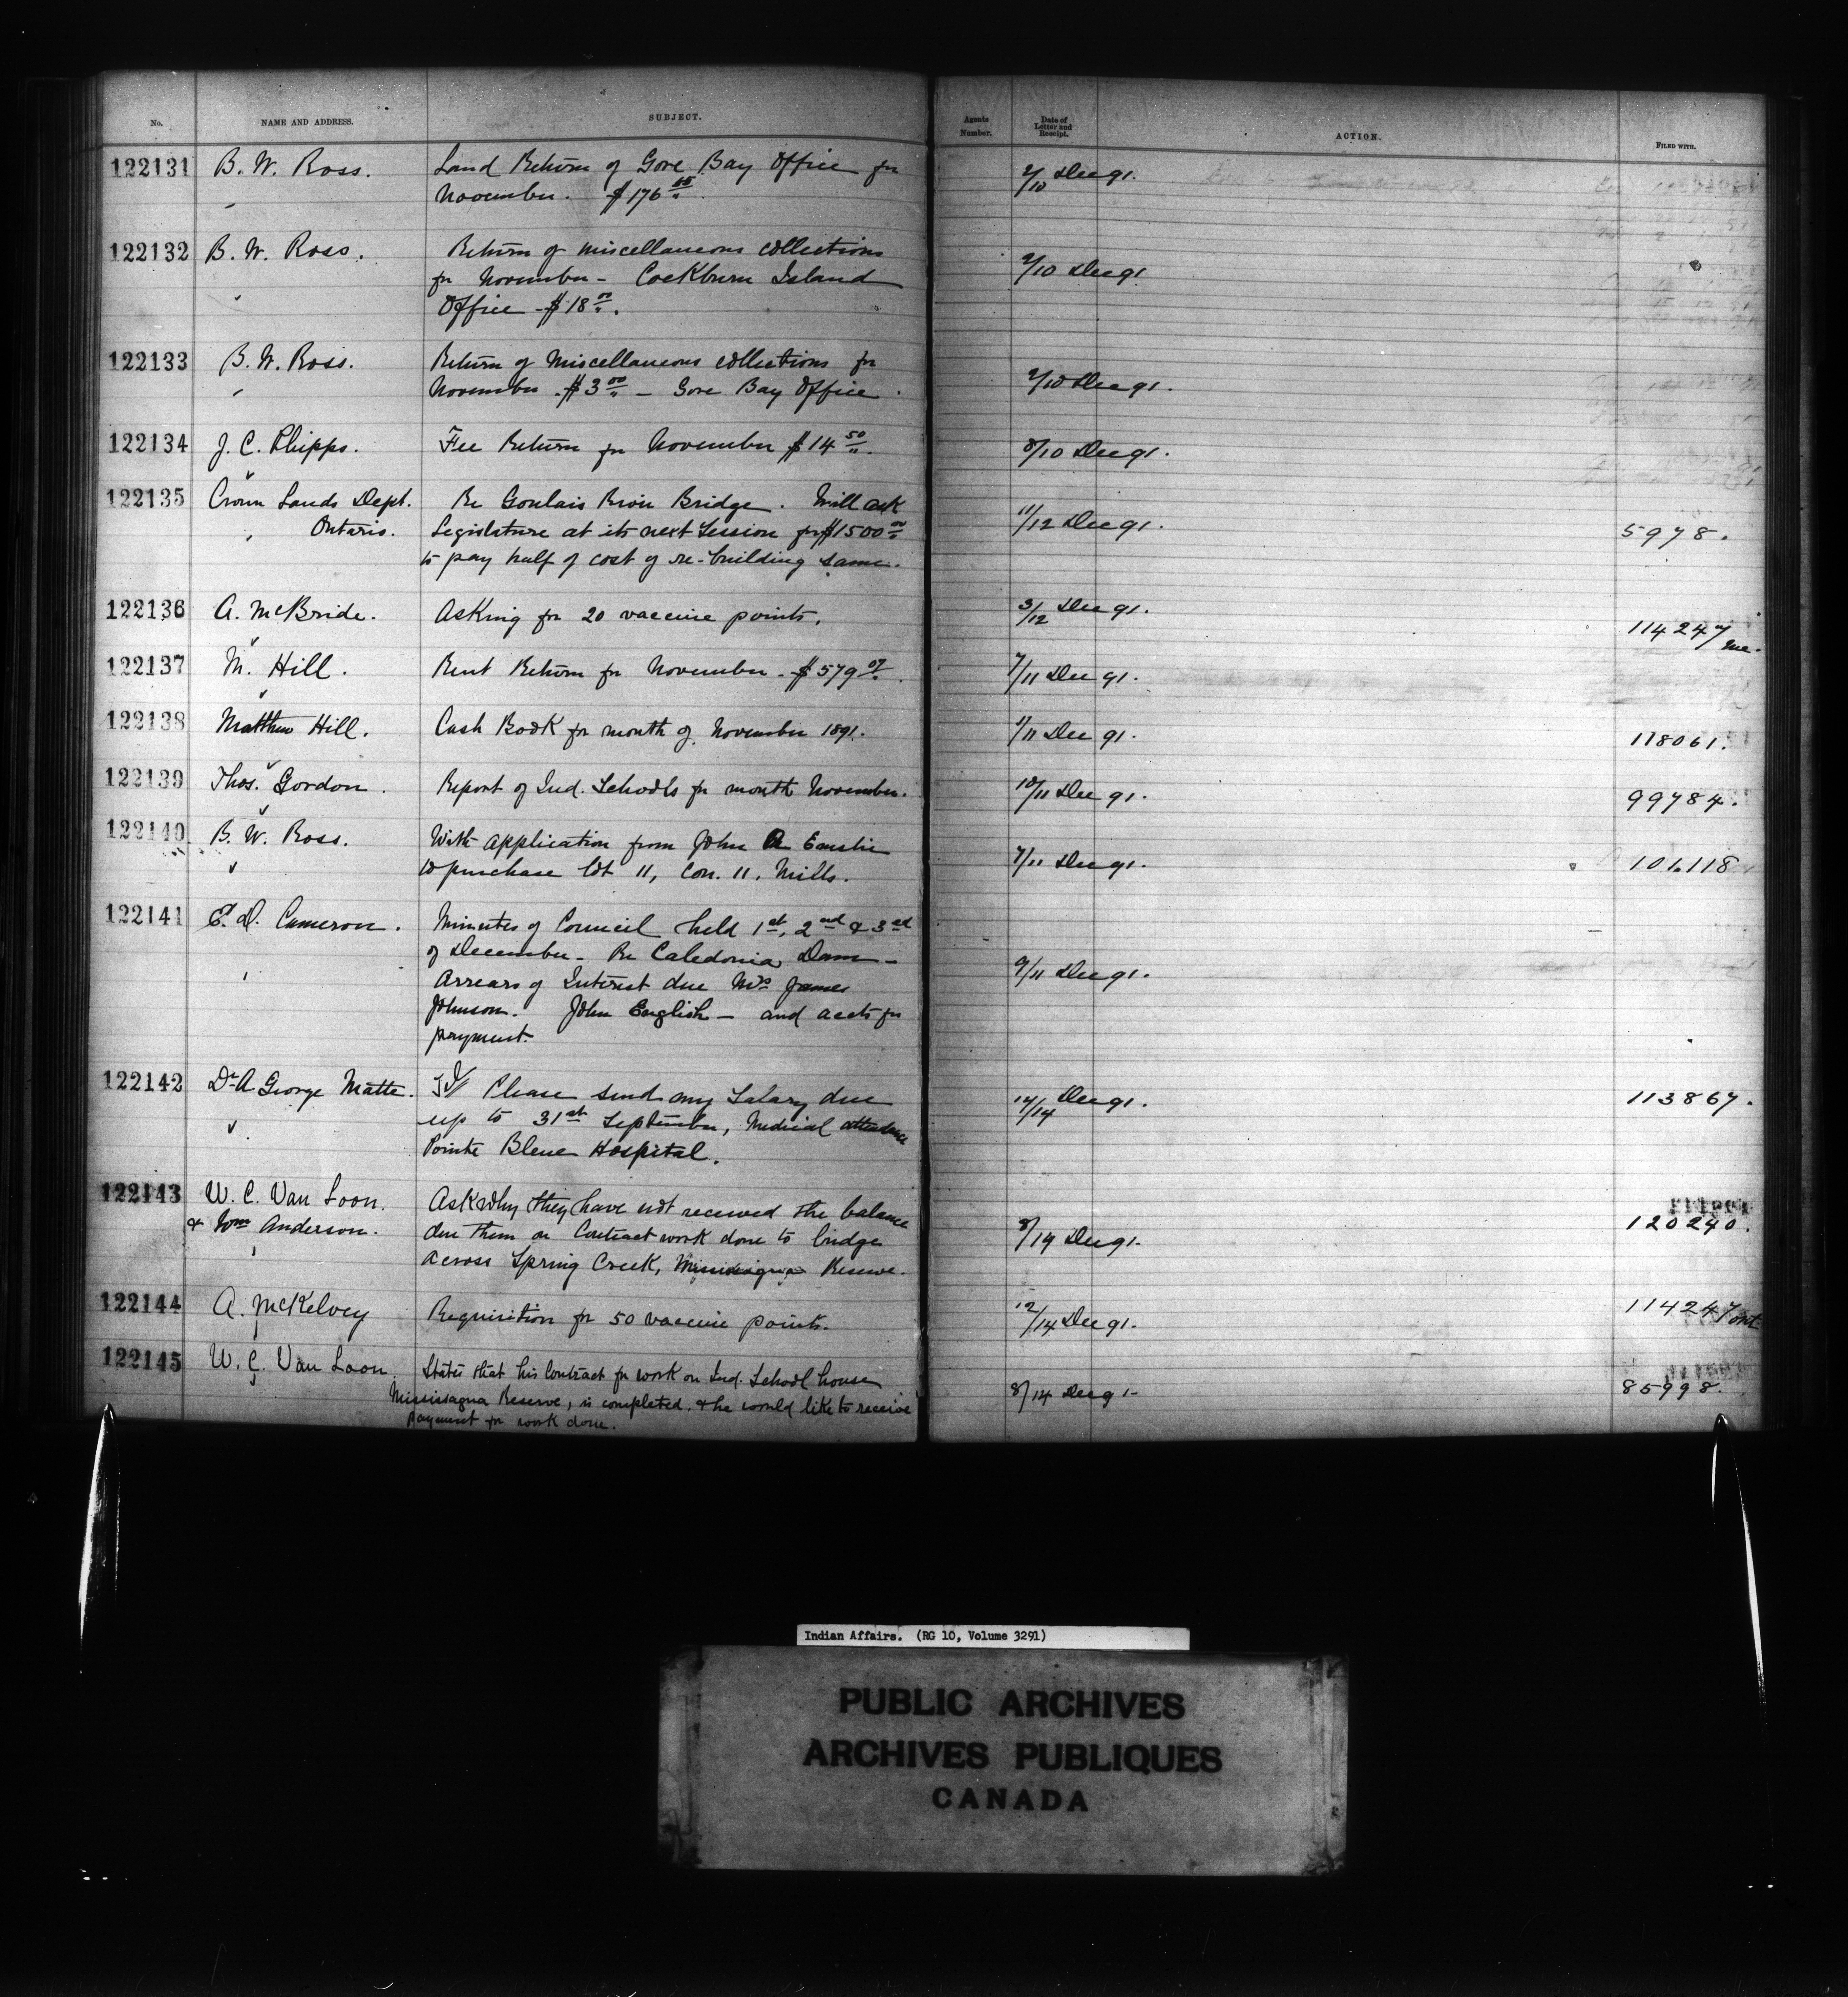 No. NAME AND ADDRESS. SUBJECT. Agents Number. Date of Letter and Receipt. ACTION. FILED WITH.
122131 B. W. Ross. Land Return of Gore Bay Office for 2/10 Dec 91.
November. $176
122132 B. W. Ross. Return of miscellaneous collections 2/10 Dec 91
for November - Cockburn Island
Office - $18 00.
122133 B. W. Ross. Return of Miscellaneous collections for 2/10 Dec 91.
November $3 00 - Gore Bay Office.
122134 J. C. Phipps. Fee Return for November $14 50. 8/10 Dec 91.
122135 Crown Lands Dept. Re Goulais River Bridge. Will ask 11/12 Dec 91. 5978.
Ontario. Legislature at its next Session for $1500 00
to pay half of cost of re-building same.
122136 A. McBride. Asking for 20 vaccine points. 3/12 Dec 91. 114247
122137 M. Hill. Rent Return for November - $579 07. 7/11 Dec 91.
122138 Matthew Hill. Cash Book for month of November 1891. 1/11 Dec 91. 118061.
122139 Thos. Gordon. Report of Ind. Schools for month November. 10/11 Dec 91. 99784.
122140 B. W. Ross. With application from John Emslie 7/11 Dec 91.
to purchase lot 11, Con. 11. Mills.
122141 E. D. Cameron. Minutes of Council held 1st, 2nd & 3rd 9/11 Dec 91.
of December - Re Caledonia Dam -
Arrears of Interest due Mrs James
Johnson. John English - and accts for
payment.
122142 Dr A George Matte. Please send my Salary due 14/14 Dec 91. 113867.
up to 31st September, Medical attendance
Pointe Bleue Hospital.
122143 W. C. Van Loon. Ask why they have not received the balance 8/14 Dec 91. 120240.
& Wm Anderson. due them on Contract work done to bridge
across Spring Creek, Mississagua Reserve.
122144 A. McKelvey Requisition for 50 vaccine points. 12/14 Dec 91. 114247 Ont
122145 W. C. Van Loon. States that his contract for work on Ind. School house 8/14 Dec 91 85998.
Mississagua Reserve, is completed. & he would like to receive
payment for work done.
Indian Affairs. (RG 10, Volume 3291)
PUBLIC ARCHIVES
ARCHIVES PUBLIQUES
CANADA